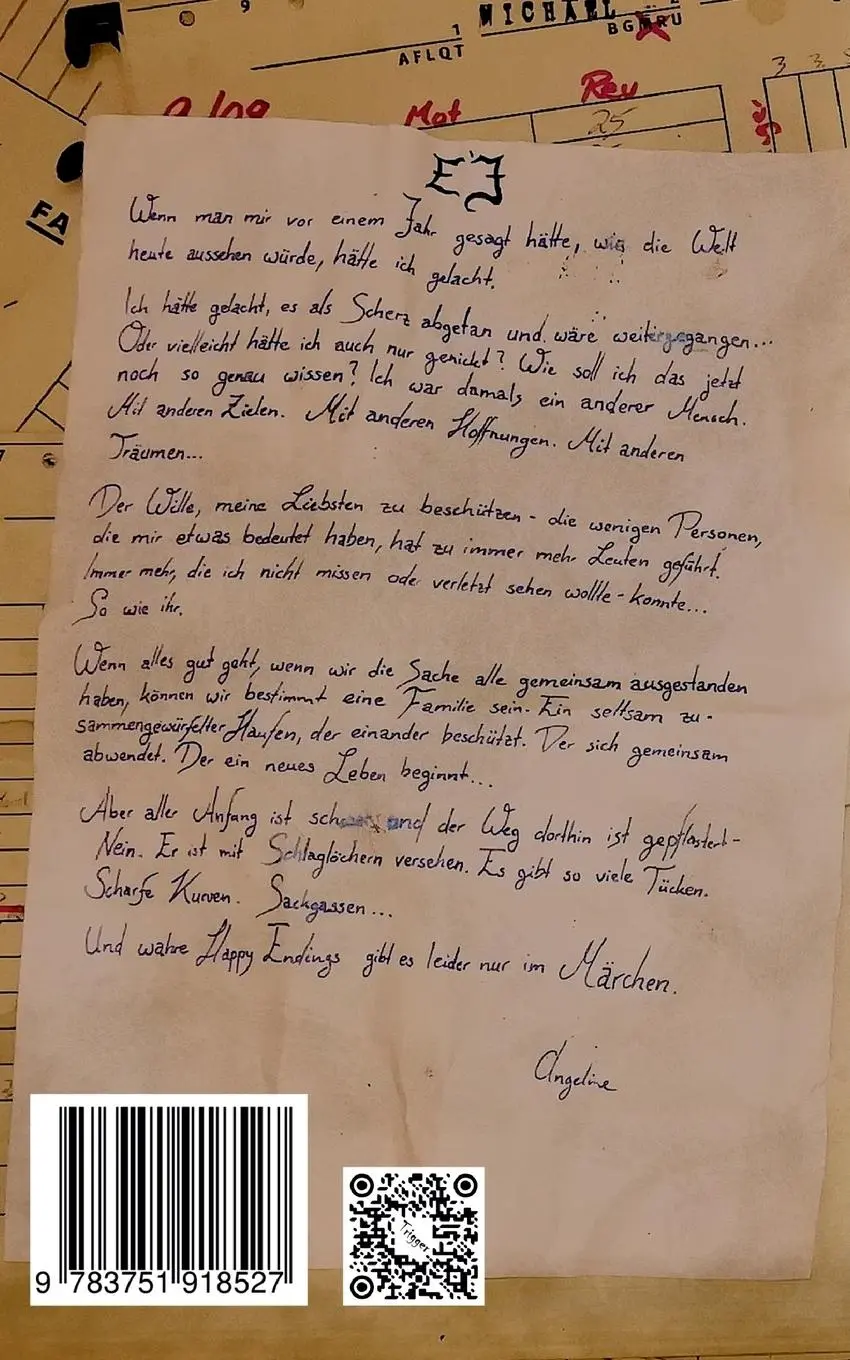 9
MICHAEL
1
2
AFLQT
BGMRU
9/09
Mot
Rev
25
3 3
FA
EJ
Wenn man mir vor einem Jahr gesagt hätte, wie die Welt
heute aussehen würde, hätte ich gelacht.
Ich hätte gelacht, es als Scherz abgetan und wäre weitergegangen...
Oder vielleicht hätte ich auch nur genickt? Wie soll ich das jetzt
noch so genau wissen? Ich war damals ein anderer Mensch.
Mit anderen Zielen. Mit anderen Hoffnungen. Mit anderen
Träumen...
Der Wille, meine Liebsten zu beschützen - die wenigen Personen,
die mir etwas bedeutet haben, hat zu immer mehr Leuten geführt.
Immer mehr, die ich nicht missen oder verletzt sehen wollte - konnte...
So wie ihr.
Wenn alles gut geht, wenn wir die Sache alle gemeinsam ausgestanden
haben, können wir bestimmt eine Familie sein. Ein seltsam zu-
sammengewürfelter Haufen, der einander beschützt. Der sich gemeinsam
abwendet. Der ein neues Leben beginnt...
Aber aller Anfang ist schwer und der Weg dorthin ist gepflastert-
Nein. Er ist mit Schlaglöchern versehen. Es gibt so viele Tücken.
Scharfe Kurven. Sackgassen...
Und wahre Happy Endings gibt es leider nur im Märchen.
Angeline
Trigger
9 783751 918527